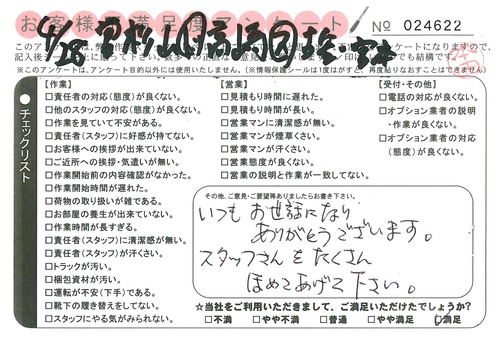 お客様満足度アンケート
№ 024622
4/28
※このアンケートは、アンケート目的以外には使用いたしません。（※情報保護シールは1度はがすと、再度貼りなおすことはできません）
チェックリスト
【作業】
□責任者の対応（態度）が良くない。
□他のスタッフの対応（態度）が良くない。
□作業を見ていて不安がある。
□責任者（スタッフ）に好感が持てない。
□お客様への挨拶が出来ていない。
□ご近所への挨拶・気遣いが無い。
□作業開始前の内容確認がなかった。
□作業開始時間が遅れた。
□荷物の取り扱いが雑である。
□お部屋の養生が出来ていない。
□作業時間が長すぎる。
□責任者（スタッフ）に清潔感が無い。
□責任者（スタッフ）が汗くさい。
□トラックが汚い。
□梱包資材が汚い。
□運転が不安（下手）である。
□靴下の履き替えをしてない。
□スタッフにやる気がみられない。
【営業】
□見積もり時間に遅れた。
□見積もり時間が長い。
□営業マンに清潔感が無い。
□営業マンが煙草くさい。
□営業マンが汗くさい。
□営業態度が良くない。
□営業の説明と作業が一致してない。
【受付・その他】
□電話の対応が良くない。
□オプション業者の説明
・作業が良くない。
□オプション業者の対応
（態度）が良くない。
その他、ご意見・ご要望等ありましたらお書き下さい。
いつも お世話になり
ありがとうございます。
スタッフさんを たくさん
ほめてあげて 下さい。
★当社をご利用いただきまして、ご満足いただけたでしょうか？
□不満 □やや不満 □普通 □やや満足 □満足